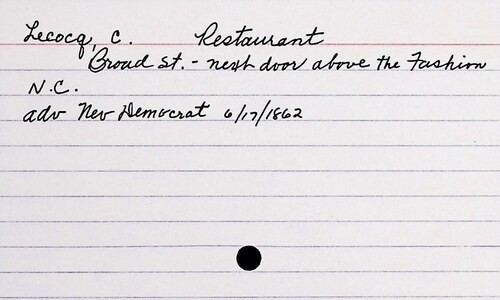 Lecocq, C. Restaurant
Broad St. - next door above the Fashion
N.C.
adv Nev Democrat 6/17/1862